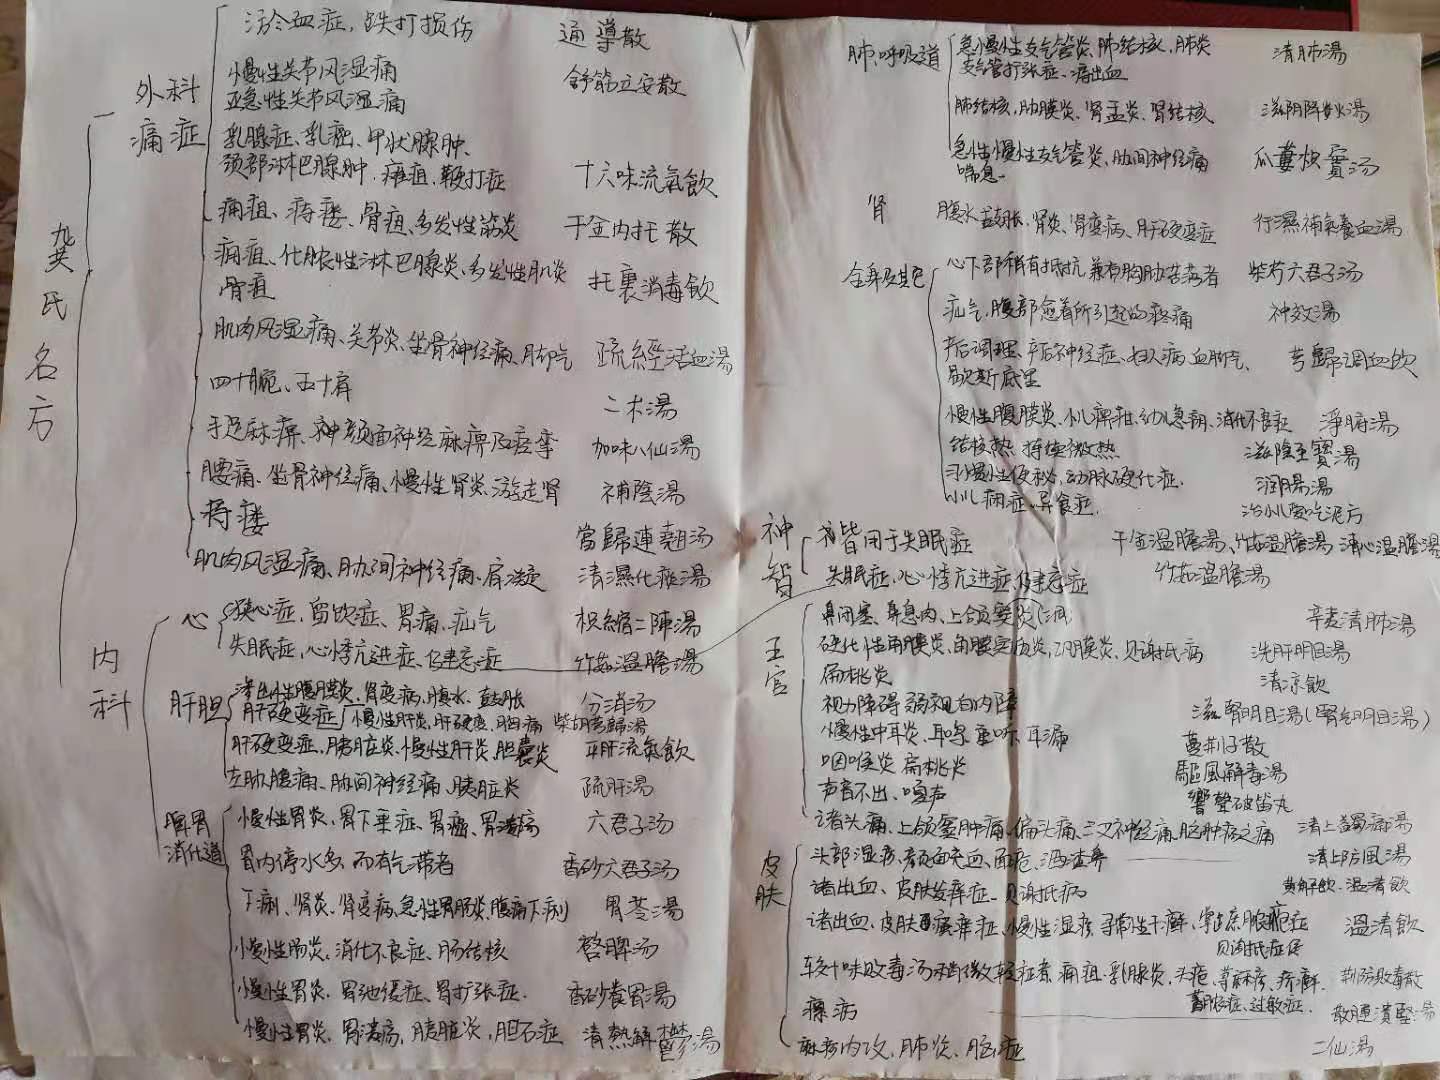 龚氏名方
外科
痛症
瘀血症，跌打损伤 通導散
慢性关节风湿痛
亚急性关节风湿痛 舒筋立安散
乳腺症、乳癌、甲状腺肿、
颈部淋巴腺肿、瘰疽、鞭打症 十六味流氣飲
痈疽、痔瘘、骨疽、多发性筋炎 千金内托散
痈疽、化脓性淋巴腺炎、多发性肌炎
骨疽 托裏消毒飲
肌肉风湿痛、关节炎、坐骨神经痛、脚气 疏經活血湯
四十腕、五十肩 二术湯
手足麻痹、颜面神经麻痹及痉挛 加味八仙湯
腰痛、坐骨神经痛、慢性肾炎、游走肾 補陰湯
痔瘘 當歸連翹汤
肌肉风湿痛、肋间神经痛、肩凝 清濕化痰湯
内科
心
狭心症，留饮症、胃痛、疝气 枳縮二陳湯
失眠症，心悸亢进症、健忘症 竹茹温膽湯
肝胆
渗出性腹膜炎、肾变病、腹水、鼓胀 分消汤
肝硬变症 慢性肝炎、肝硬变、胸痛 柴胡芎歸湯
肝硬变症、胰脏炎、慢性肝炎、胆囊炎 平肝流氣飲
左肋腹痛、肋间神经痛、胰脏炎 疏肝湯
脾胃
消化道
慢性胃炎、胃下垂症、胃癌、胃溃疡 六君子汤
胃内停水多，而有气滞者 香砂六君子汤
下痢、肾炎、肾变病、急性胃肠炎、腹痛下痢 胃苓湯
慢性肠炎、消化不良症、肠结核 啓脾汤
慢性胃炎、胃弛缓症、胃扩张症. 香砂養胃湯
慢性胃炎、胃溃疡、胰脏炎、胆石症 清熱解鬱湯
肺、呼吸道
急慢性支气管炎、肺结核、肺炎
支气管扩张症、痔出血 清肺湯
肺结核、肋膜炎、肾盂炎、肾结核 滋阴降火湯
急性慢性支气管炎、肋间神经痛
喘息. 瓜蔞枳實汤
肾
腹水鼓胀、肾炎、肾变病、肝硬变症 行濕補氣養血湯
全身及其它
心下部稍有抵抗兼有胸肋苦满者 柴芍六君子汤
疝气、腹部瘀着所引起的疼痛 神效湯
产后调理、产后神经症、妇人病血脚气、
歇斯底里 芎歸调血饮
慢性腹膜炎、小儿痹疳、幼儿急痫、消化不良症 淨腑湯
结核热 持续微热 滋陰至寶湯
慢性便秘、动脉硬化症. 润腸湯
小儿痫症、异食症. 治小儿爱吃泥方
神智
皆用于失眠症 千金温膽湯、竹茹温膽湯 清心温膽湯
失眠症、心悸亢进症 健忘症 竹茹温膽湯
五官
鼻闭塞、鼻息肉、上颌窦炎 辛夷清肺湯
硬化性角膜炎，角膜实质炎，巩膜炎，贝谢氏病 洗肝明目湯
扁桃炎 清凉飲
视力障碍 弱视 白内障 滋腎明目湯（腎气明目湯）
慢性中耳炎、耳鸣重听 耳漏 蔓荆子散
咽喉炎 扁桃炎 驅風解毒湯
声音不出、嗄声 響聲破笛丸
诸头痛、上颌窦肿痛、偏头痛、三叉神经痛、脑肿疡之痛 清上蠲痛湯
皮肤
头部湿疹、颜面充血、面疱、酒渣鼻 清上防風湯
诸出血、皮肤发痒症、贝谢抵病 黄解飲、温清飲
诸出血、皮肤瘙痒症、慢性湿疹、寻常性干癣、掌蹠脓疱症
贝谢抵症候 温清飲
较十味败毒汤稍微轻症者，痈疽、乳腺炎、头疮、荨麻疹、疥癣. 荆防败毒散
蓄脓症、过敏症.
瘰疬 散腫潰堅湯
麻疹内攻、肺炎、脑症 二仙湯